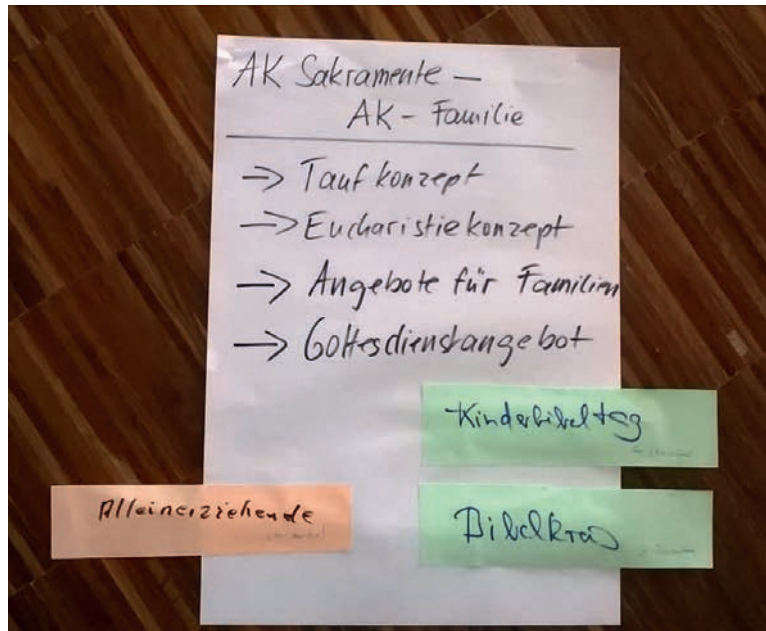 AK Sakramente –
AK - Familie
→ Taufkonzept
→ Eucharistiekonzept
→ Angebote für Familien
→ Gottesdienstangebot
Kinderbibeltag
Alleinerziehende
Bibelkreis